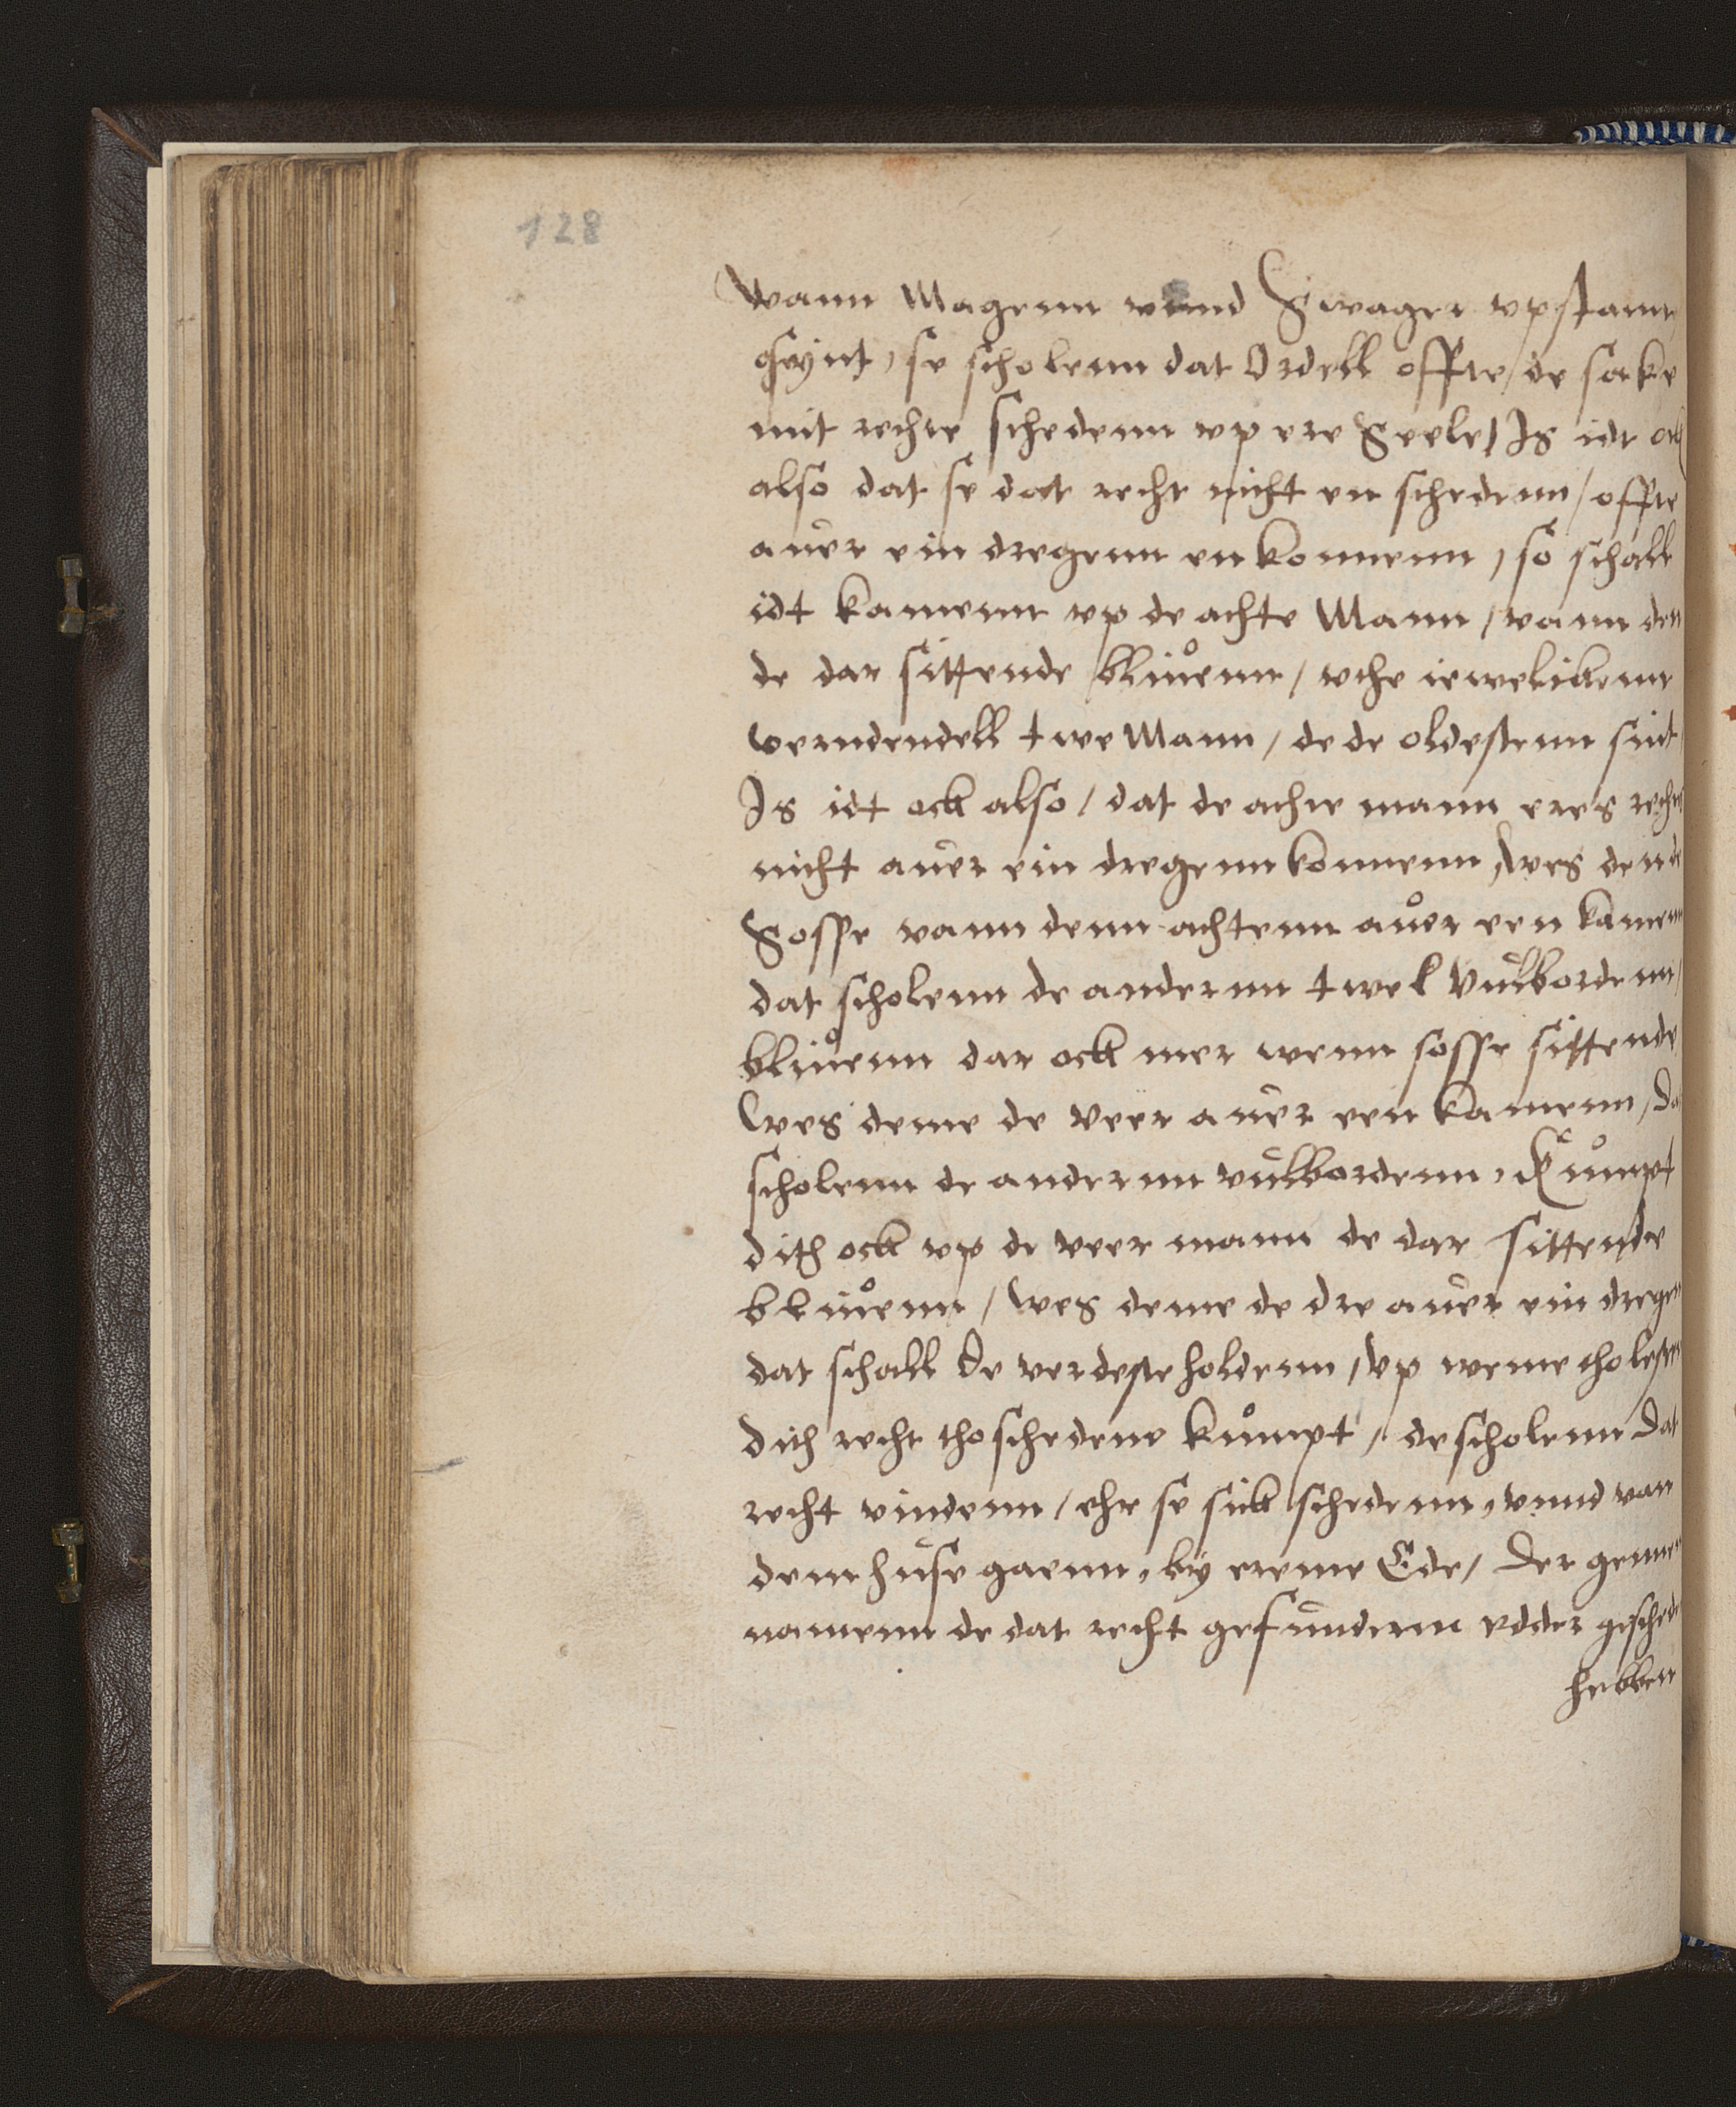 128
Wann Magenn vnnd Swager vpstann
gynt, se scholenn dat Ordell offte de sake
mit rechte schedenn vp ere Seele / Is idt ock
also dat se dat recht nicht en schedenn / offte
auer ein dregenn en konnenn, so schall
idt kamenn vp de achte Mann / vann den
de dar sittende bliuenn / vthe iewelickenn
verndendell twe Mann / de de oldestenn sint
Is idt ock also / dat de achte mann eres rechts
nicht auer ein dregenn konnenn, wes den de
Sosse vann denn achtenn auer een kamenn
dat scholenn de andernn twe vulbordenn /
bliuenn dar ock mer wenn sosse sittende
Wes deme de veer auer een kamenn, da
scholenn de andernn vulbordenn, Kumpt
dith ock vp de veer mann de dar sittende
bliuenn / Wes deme de dre auer ein dregen
dat schall de verdeste holdenn / vp weme tho lesten
dith recht tho schedene kumpt / de scholenn dat
recht vindenn / ehr se sick schedenn, vnnd van
dem huse gaenn, by ereme Ede / Der genne
namenn de dat recht gefundenn edder geschede
hebben